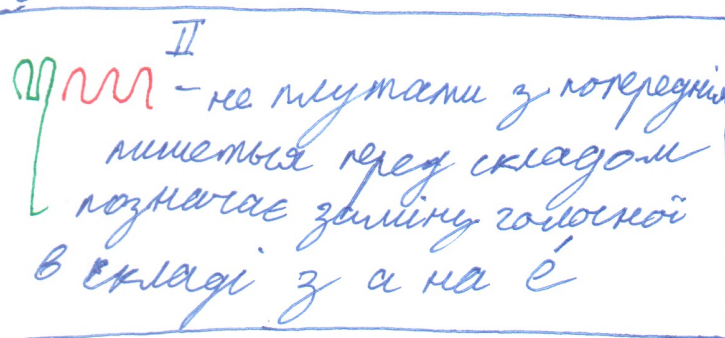 II
ꦲꦺ – не плутати з попереднім
пишеться перед складом
позначає заміну голосної
в складі з а на é